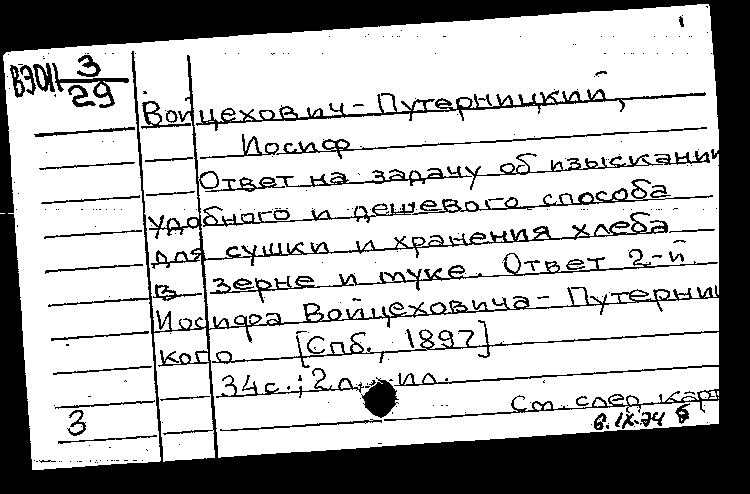 1
ВЭОII 3/29
Войцехович-Путерницкий,
Иосиф
Ответ на задачу об изыскании
удобного и дешевого способа
для сушки и хранения хлеба
в зерне и муке. Ответ 2-й
Иосифа Войцеховича-Путерниц
кого [Спб., 1897].
34с.; 2 л. ил.
См. след. карт
3
6.IX.74